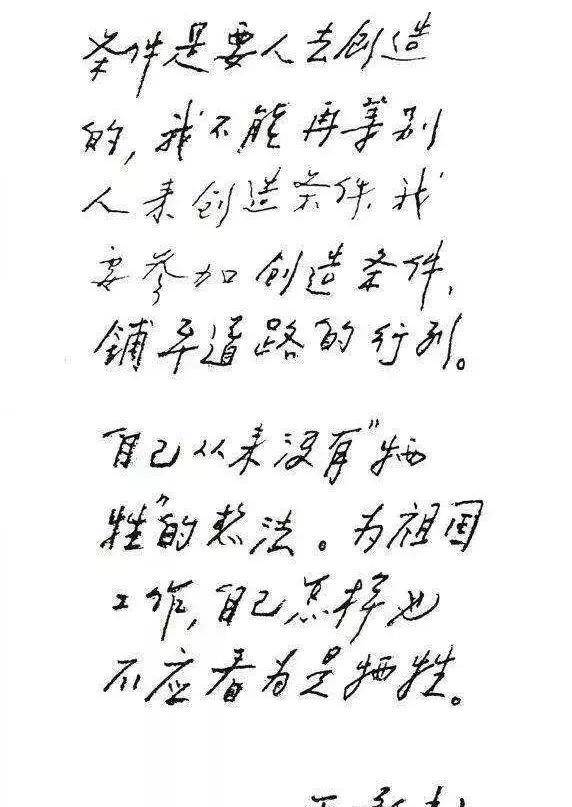 条件是要人去创造
的，我不能再等别
人来创造条件，我
要参加创造条件，
铺平道路的行列。
自己从来没有“牺
牲”的想法。为祖国
工作，自己怎样也
不应看为是牺牲。